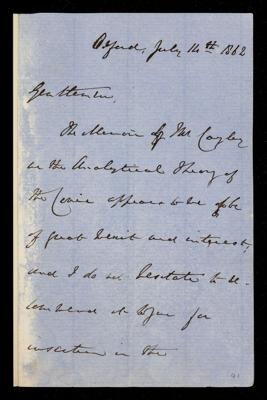 Oxford, July 14th 1862
Gentlemen,
The Memoir of Mr Cayley
on the Analytical Theory of
the Conic appears to be
of great merit and interest,
and I do not hesitate to re-
commend it to you for
insertion in the
41